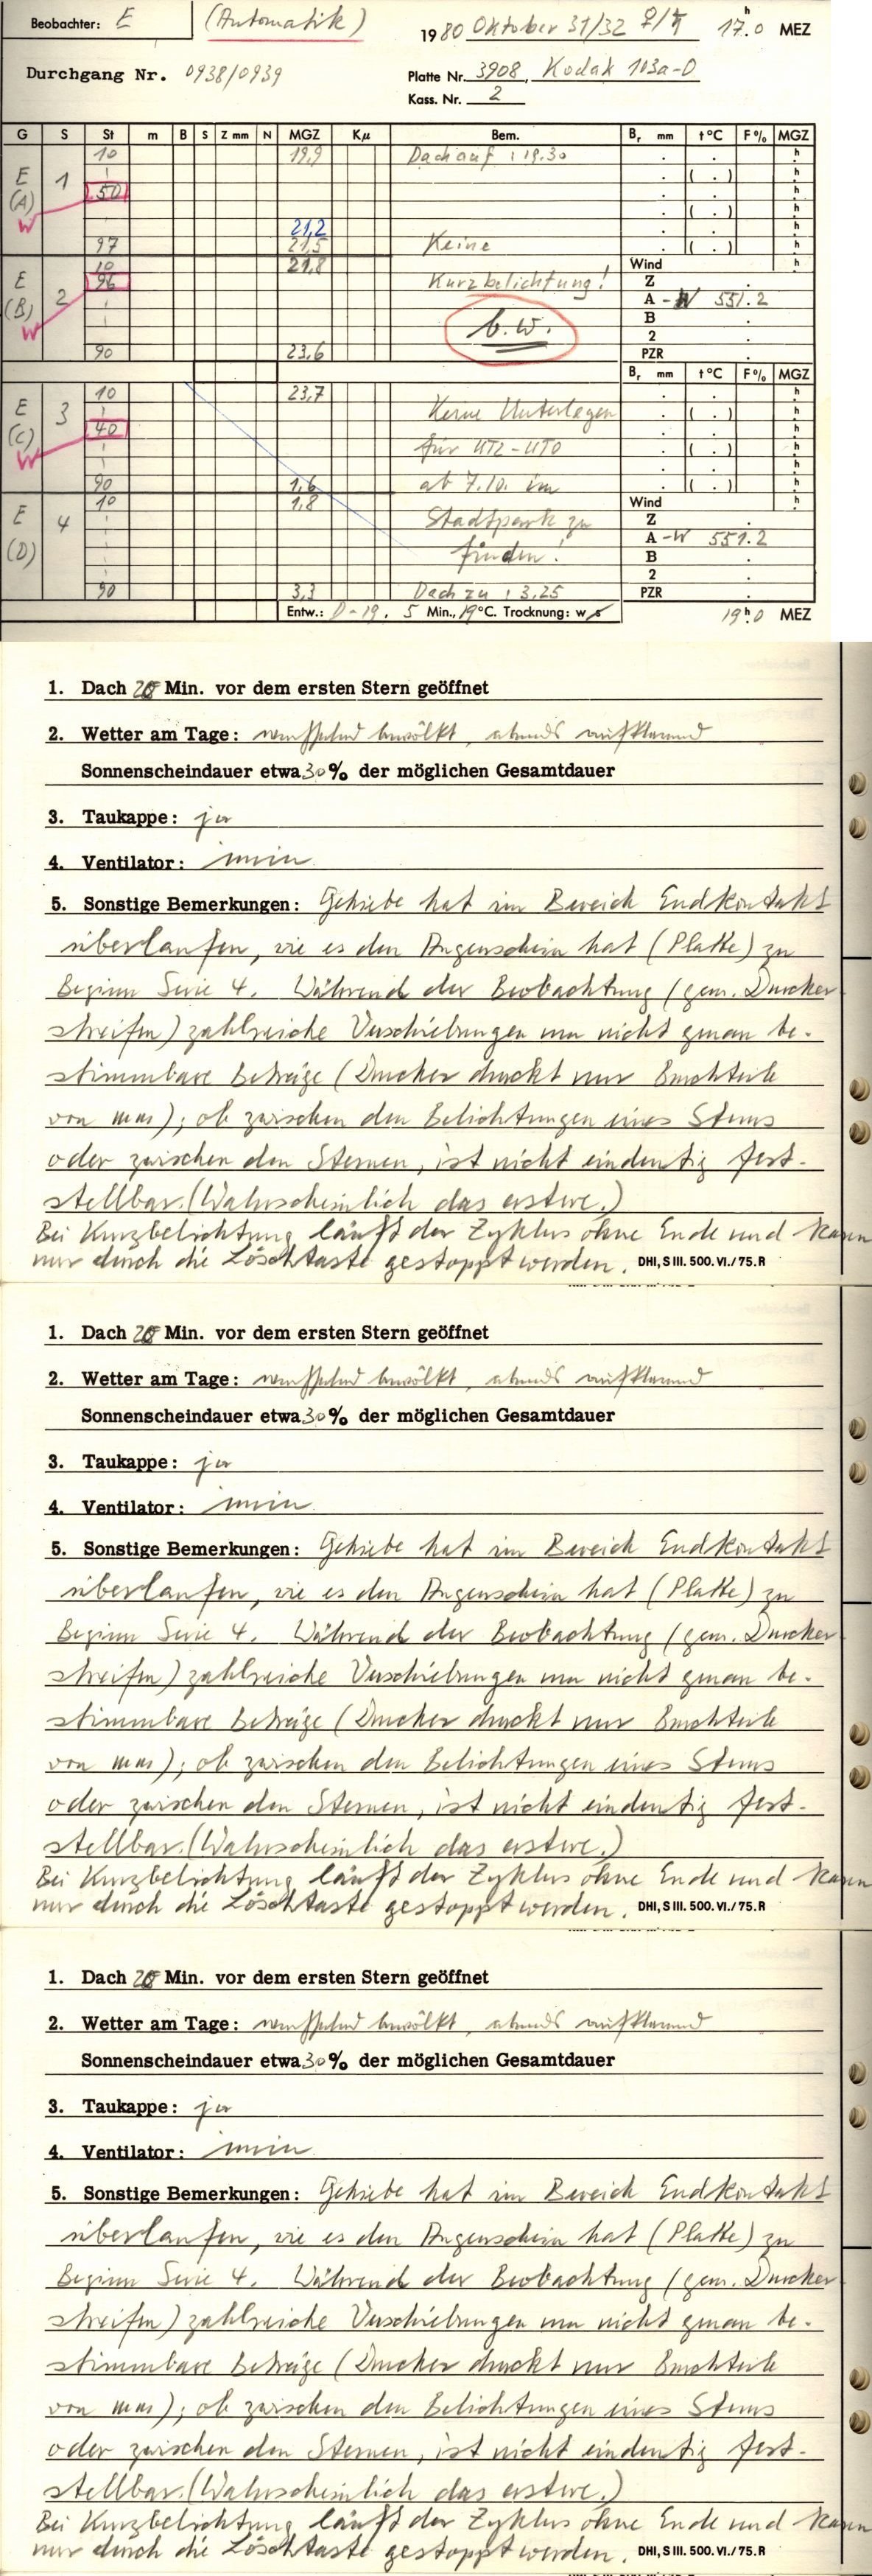 Beobachter: E (Automatik) 1980 Oktober 31/32 ♀/♄ 17.ʰ0 MEZ
Durchgang Nr. 0938/0939 Platte Nr. 3908, Kodak 103a-D
Kass. Nr. 2
G S St m B S Z mm N MGZ Kμ Bem. Bᵣ mm t°C F% MGZ
10 19,9 Dach auf : 19.30 h
E (A) W 1 50 ( . ) h
21,2
97 21,5 Keine ( . ) h
10 21,8 Wind h
E (B) W 2 96 Kurzbelichtung! Z
A - W 551.2
b.w. B
2
90 23,6 PZR
Bᵣ mm t°C F% MGZ
10 23,7 h
E (C) W 3 40 Keine Unterlagen ( . ) h
für UT2-UT0 ( . ) h
90 1,6 ab 7.10. im ( . ) h
10 1,8 Wind h
E (D) 4 Stadtpark zu Z
A - W 551.2
finden! B
2
90 3,3 Dach zu : 3,25 PZR
Entw.: D-19. 5 Min., 19°C. Trocknung: w s 19ʰ.0 MEZ
1. Dach 20 Min. vor dem ersten Stern geöffnet
2. Wetter am Tage: wechselnd bewölkt, abends aufklarend
Sonnenscheindauer etwa 30% der möglichen Gesamtdauer
3. Taukappe: ja
4. Ventilator: nein
5. Sonstige Bemerkungen: Getriebe hat im Bereich Endkontakt
überlaufen, wie es den Augenschein hat (Platte) zu
Beginn Serie 4. Während der Beobachtung (gem. Drucker
streifen) zahlreiche Verschiebungen um nicht genau be-
stimmbare Beträge (Drucker druckt nur Bruchteile
von mm); ob zwischen den Belichtungen eines Sterns
oder zwischen den Sternen, ist nicht eindeutig fest-
stellbar. (Wahrscheinlich das erstere.)
Bei Kurzbelichtung läuft der Zyklus ohne Ende und kann
nur durch die Löschtaste gestoppt werden. DHI, S III. 500. VI./75. R
1. Dach 20 Min. vor dem ersten Stern geöffnet
2. Wetter am Tage: wechselnd bewölkt, abends aufklarend
Sonnenscheindauer etwa 30% der möglichen Gesamtdauer
3. Taukappe: ja
4. Ventilator: nein
5. Sonstige Bemerkungen: Getriebe hat im Bereich Endkontakt
überlaufen, wie es den Augenschein hat (Platte) zu
Beginn Serie 4. Während der Beobachtung (gem. Drucker
streifen) zahlreiche Verschiebungen um nicht genau be-
stimmbare Beträge (Drucker druckt nur Bruchteile
von mm); ob zwischen den Belichtungen eines Sterns
oder zwischen den Sternen, ist nicht eindeutig fest-
stellbar. (Wahrscheinlich das erstere.)
Bei Kurzbelichtung läuft der Zyklus ohne Ende und kann
nur durch die Löschtaste gestoppt werden. DHI, S III. 500. VI./75. R
1. Dach 20 Min. vor dem ersten Stern geöffnet
2. Wetter am Tage: wechselnd bewölkt, abends aufklarend
Sonnenscheindauer etwa 30% der möglichen Gesamtdauer
3. Taukappe: ja
4. Ventilator: nein
5. Sonstige Bemerkungen: Getriebe hat im Bereich Endkontakt
überlaufen, wie es den Augenschein hat (Platte) zu
Beginn Serie 4. Während der Beobachtung (gem. Drucker
streifen) zahlreiche Verschiebungen um nicht genau be-
stimmbare Beträge (Drucker druckt nur Bruchteile
von mm); ob zwischen den Belichtungen eines Sterns
oder zwischen den Sternen, ist nicht eindeutig fest-
stellbar. (Wahrscheinlich das erstere.)
Bei Kurzbelichtung läuft der Zyklus ohne Ende und kann
nur durch die Löschtaste gestoppt werden. DHI, S III. 500. VI./75. R